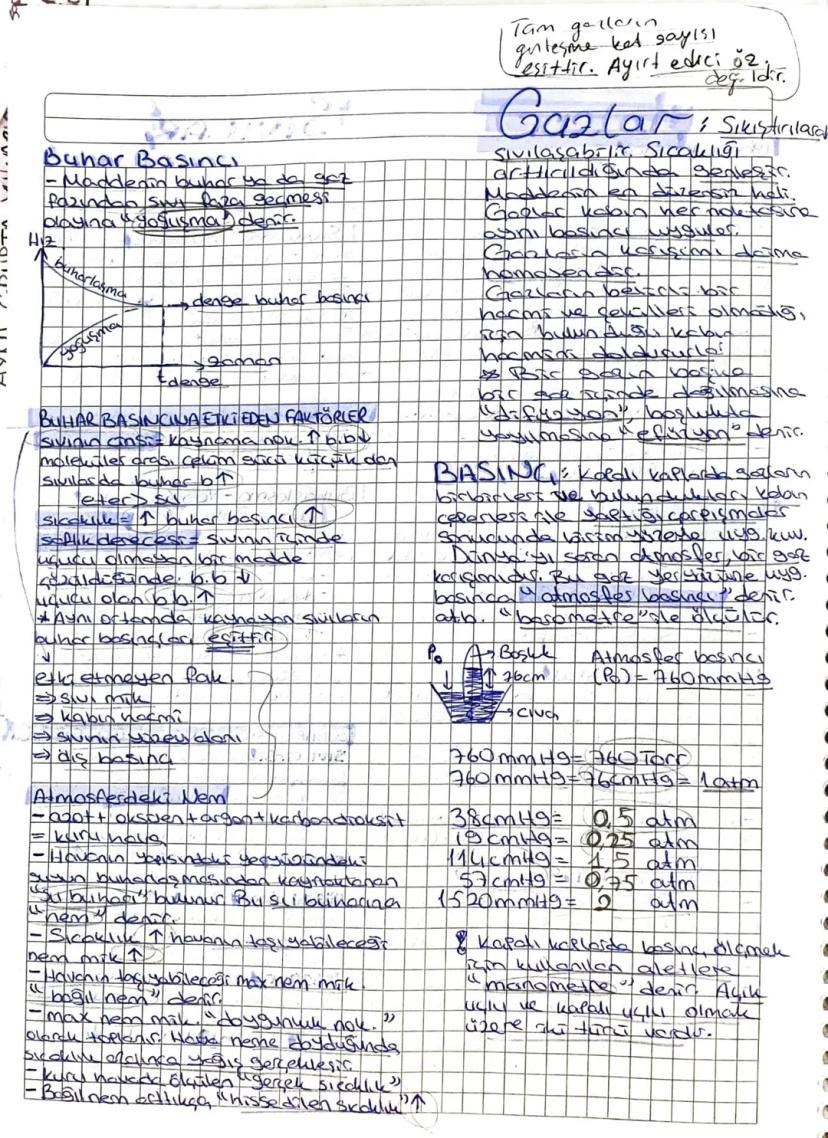 Tam gazların
genleşme kat sayısı
eşittir. Ayırt edici öz.
değildir.
Buhar Basıncı
- Maddenin buhar ya da gaz
fazından sıvı faza geçmesi
olayına "yoğuşma" denir.
Hız
buharlaşma
→ denge buhar basıncı
yoğuşma
→ zaman
t denge
BUHAR BASINCINA ETKİ EDEN FAKTÖRLER
sıvının cinsi = kaynama nok. ↑ b.b ↓
moleküller arası çekim gücü küçük olan
sıvılarda buhar b ↑
eter > su
sıcaklık = ↑ buhar basıncı ↑
saflık derecesi = sıvının içinde
uçucu olmayan bir madde
çözüldüğünde b.b ↓
uçucu olan b.b. ↑
* Aynı ortamda kaynayan sıvıların
buhar basınçları eşittir
↓
etki etmeyen fak.
⇒ sıvı mik
⇒ kabın hacmi
⇒ sıvının yüzey alanı
⇒ dış basınç
Atmosferdeki Nem
- azot + oksijen + argon + karbondioksit
= kuru hava
- Havanın yapısındaki yeryüzündeki
suyun buharlaşmasından kaynaklanan
"su buharı" bulunur. Bu su buharına
"nem" denir.
- Sıcaklık ↑ havanın taşıyabileceği
nem mik ↑
- Havanın taşıyabileceği max nem mik.
"bağıl nem" denir
- max nem mik. "doygunluk nok."
olarak toplanır. Hava neme doyduğunda
sıcaklık yağış gerçekleşir
- kuru havada ölçülen "gerçek sıcaklık"
- Bağıl nem arttıkça, "hissedilen sıcaklık" ↑
Gazlar: Sıkıştırılarak
sıvılaşabilir. Sıcaklığı
arttırıldığında genleşir.
Maddenin en düzensiz hali.
Gazlar kabın her noktasına
aynı basıncı uygular.
Gazların karışımı daima
homojendir.
Gazların belirli bir
hacmi ve şekilleri olmadığı
için bulunduğu kabın
hacmini doldururlar
* Bir gazın başka
bir gaz içinde dağılmasına
"difüzyon" boşlukta
yayılmasına "efüzyon" denir.
BASINÇ: Kapalı kaplarda gazların
birbirleri ve bulundukları kabın
çeperleri ile yaptığı çarpışmalar
sonucunda birim yüzeye uyg. kuv.
Dünya'yı saran atmosfer, bir gaz
karışımıdır. Bu gaz yeryüzüne uyg.
basınca "atmosfer basıncı" denir.
atb. "barometre" ile ölçülür.
P₀
→ Boşluk
76cm
→ civa
Atmosfer basıncı
(P₀) = 760 mmHg
760 mmHg = 760 Torr
760 mmHg = 76 cmHg = 1 atm
38 cmHg = 0,5 atm
19 cmHg = 0,25 atm
114 cmHg = 1,5 atm
57 cmHg = 0,75 atm
1520 mmHg = 2 atm
! Kapalı kaplarda basınç ölçmek
için kullanılan aletlere
"manometre" denir. Açık
uçlu ve kapalı uçlu olmak
üzere iki türü vardır.